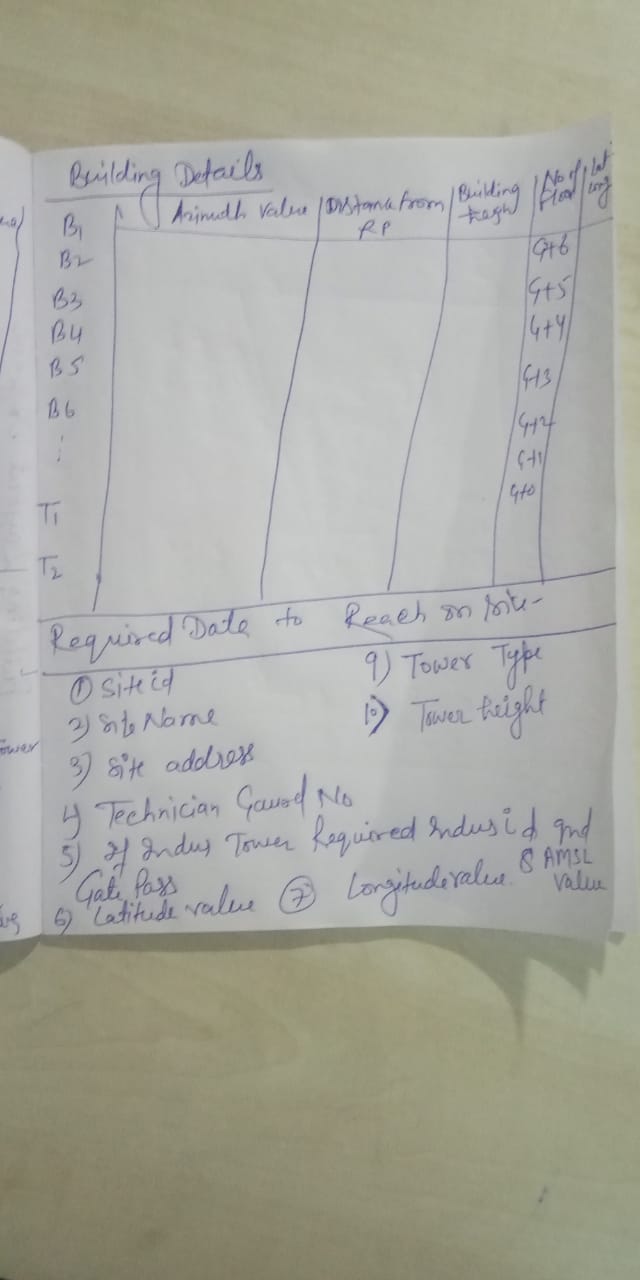 Building Details
Azimuth Value | Distance from RP | Building | No of Floor | Lat Long
B1
B2 G+6
B3 G+5
B4 G+4
B5 G+3
B6 G+2
⋮ G+1
G+0
T1
T2
Required Data to Reach on Site-
① Site id
2) Site Name
3) Site address
4) Technician Gaurd No
5) If Indus Tower Required Indus id and
Gate Pass
6) Latitude value ⑦ Longitude value. 8 AMSL value
9) Tower Type
10) Tower height